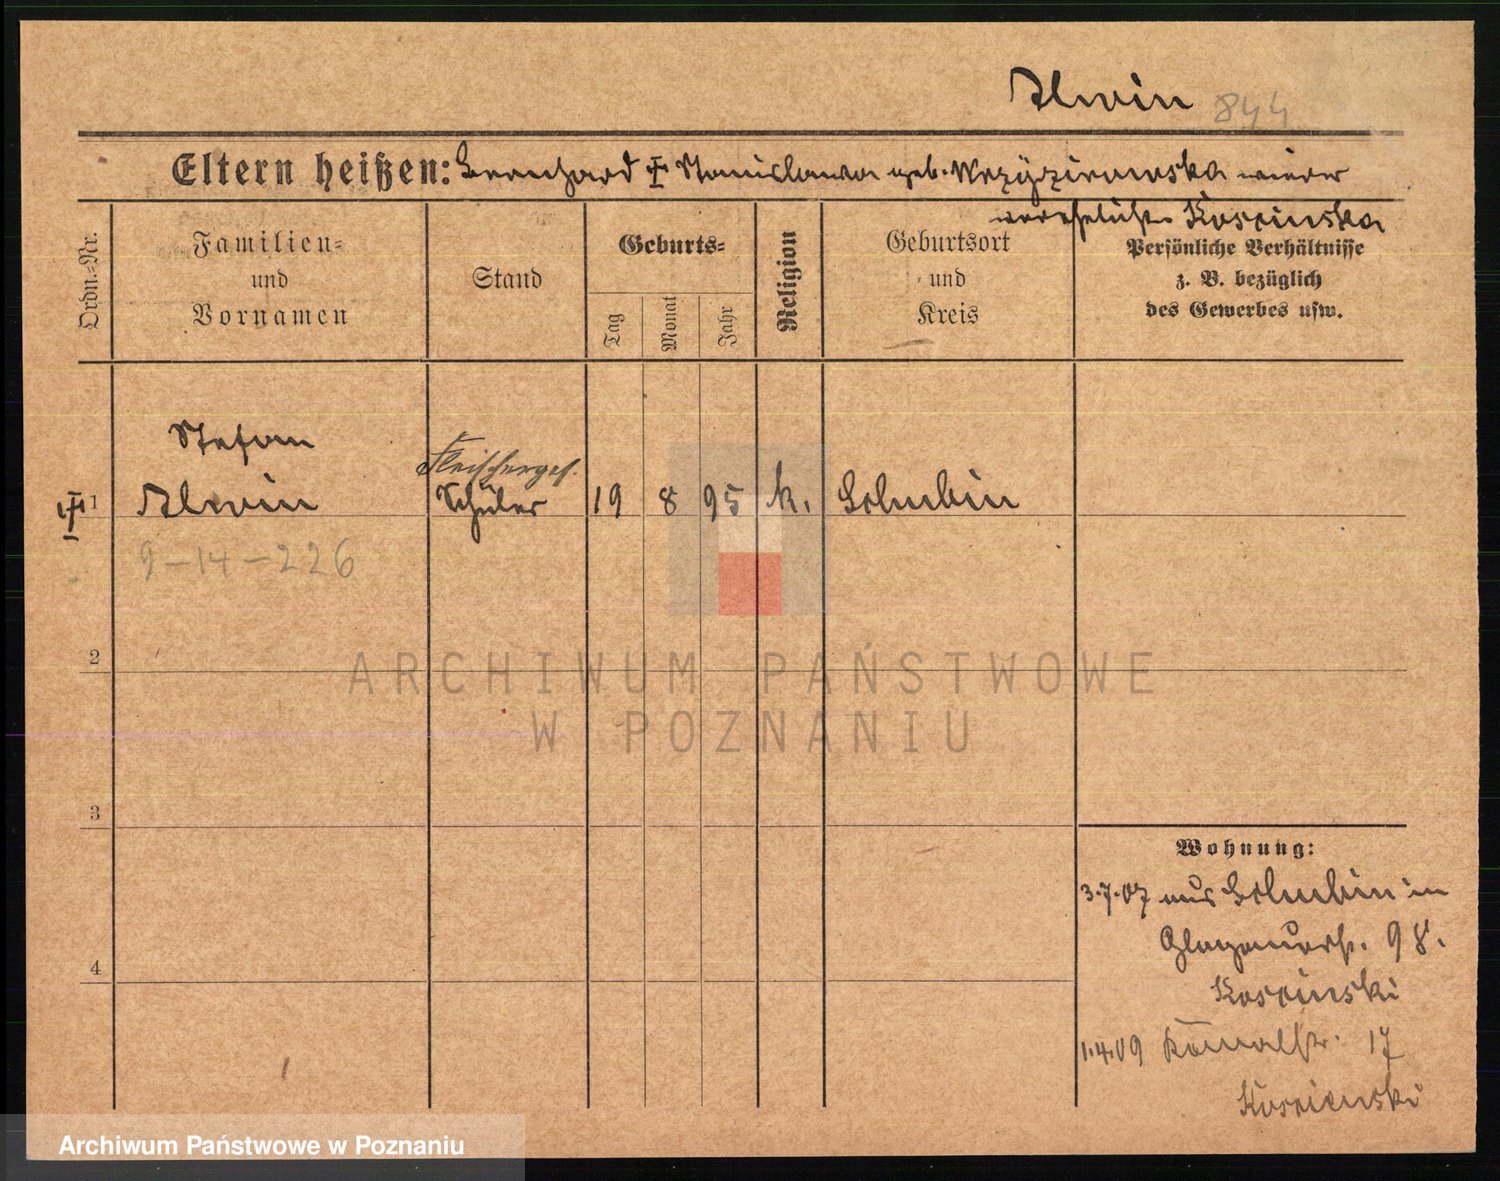 Alwin 844
Eltern heißen: Bernhard Stanislawa geb. wieder
verehelichte Kosринska
Ordn.-Nr.
Familien-
und
Vornamen
Stand
Geburts-
Tag
Monat
Jahr
Religion
Geburtsort
und
Kreis
Persönliche Verhältnisse
z. B. bezüglich
des Gewerbes usw.
Stefan
Fleischerges.
1 Alwin Schüler 19 8 95 k.
9-14-226
2
ARCHIWUM PAŃSTWOWE
W POZNANIU
3
Wohnung:
3.7.07 aus in
Glogauerstr. 98.
4
1.4.09 Kanalstr. 17
Archiwum Państwowe w Poznaniu